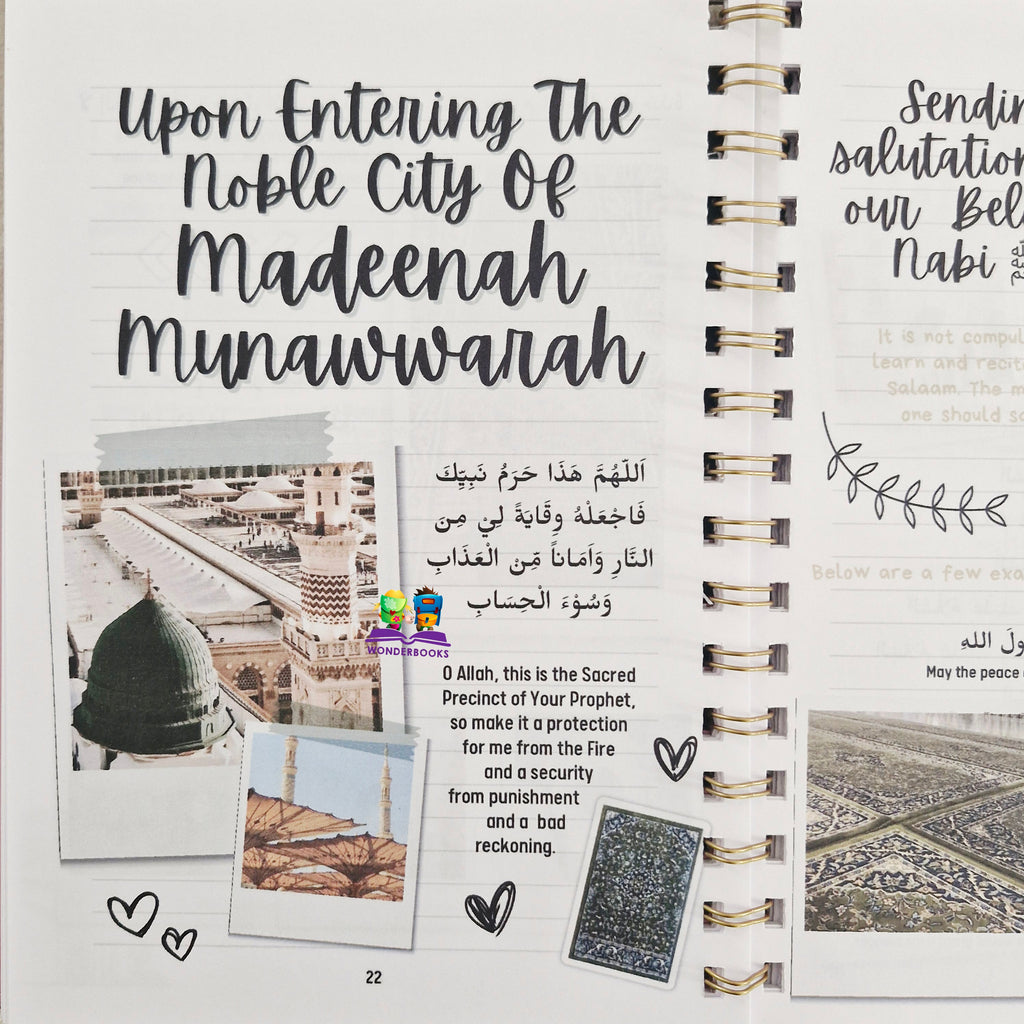 Upon Entering The
Noble City Of
Madeenah
Munawwarah
اَللّٰهُمَّ هَذَا حَرَمُ نَبِيِّكَ
فَاجْعَلْهُ وِقَايَةً لِيْ مِنَ
النَّارِ وَاَمَاناً مِّنَ الْعَذَابِ
وَسُوْءَ الْحِسَابِ
WONDERBOOKS
O Allah, this is the Sacred
Precinct of Your Prophet,
so make it a protection
for me from the Fire
and a security
from punishment
and a bad
reckoning.
22
Sendin
salutation
our Bel
Nabi
It is not compul
learn and recit
Salaam. The m
one should s
Below are a few exa
ولَ اللهِ
May the peace